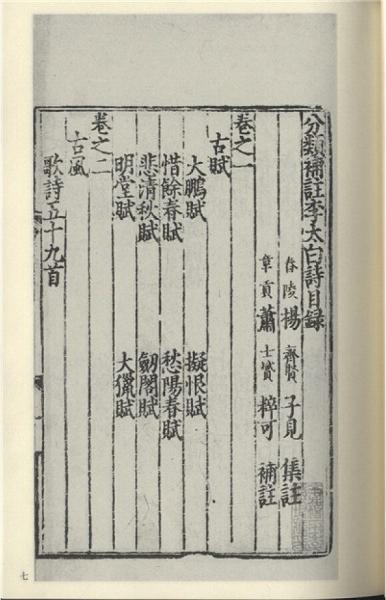 分類補註李太白詩目録
舂陵楊齊賢子見集註
章貢蕭士贇粹可補註
卷之一
古賦
大鵬賦 擬恨賦
惜餘春賦 愁陽春賦
悲清秋賦 劒閣賦
明堂賦 大獵賦
卷之二
古風
歌詩五十九首
七